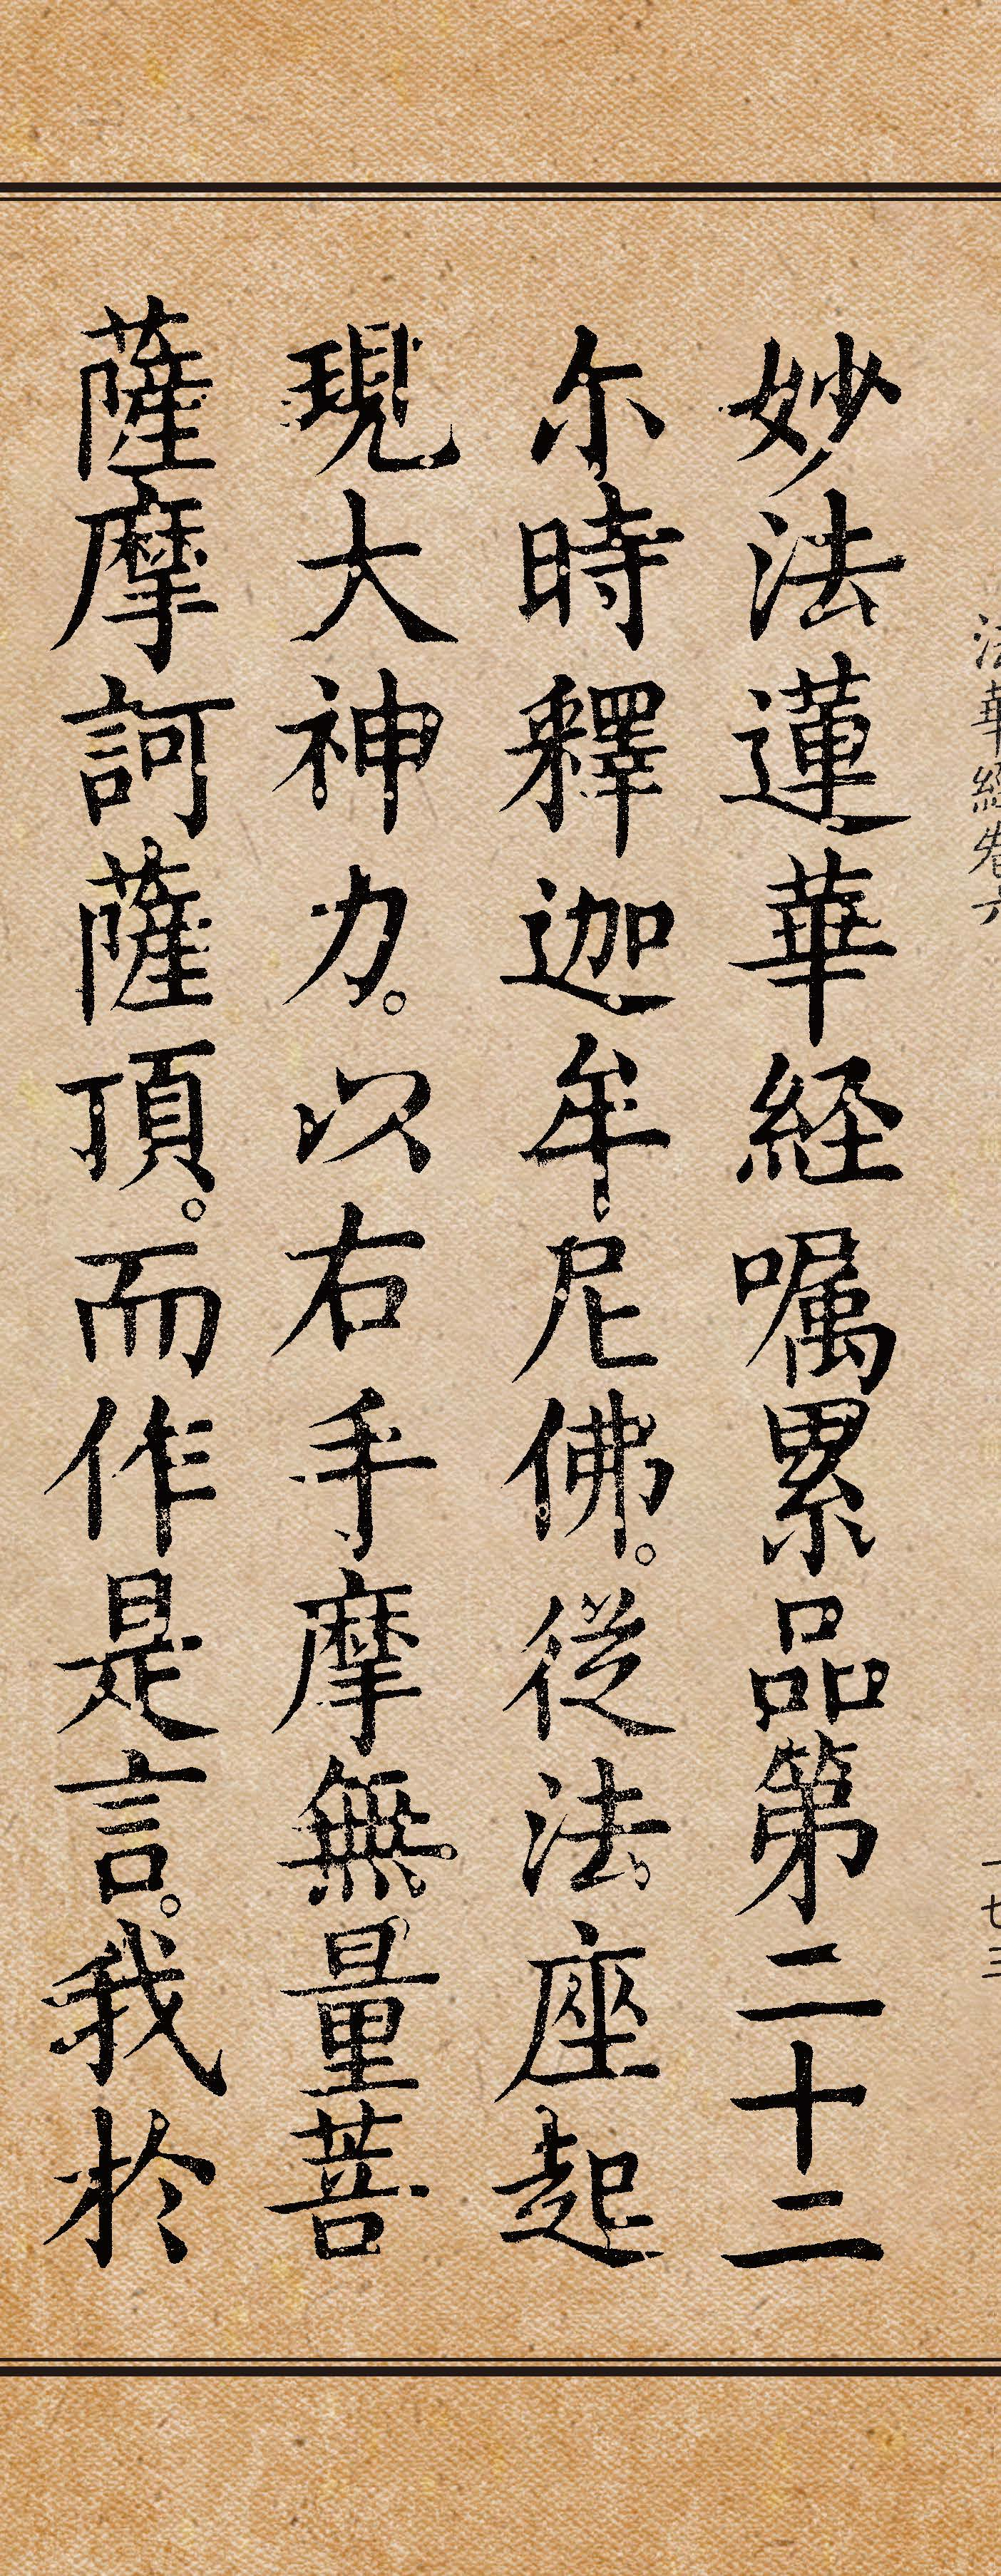 法華經卷六 一七三
妙法蓮華経嘱累品第二十二
尓時釋迦牟尼佛。從法座起
現大神力。以右手摩無量菩
薩摩訶薩頂。而作是言。我於